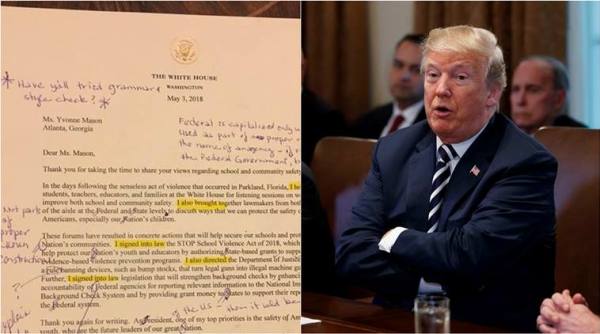 THE WHITE HOUSE
WASHINGTON
* Have y'all tried grammar &
style check? *
May 3, 2018
Ms. Yvonne Mason
Atlanta, Georgia
Federal is capitalized only
used as part of proper
the name of an agency – of
the Federal Government, b
Dear Ms. Mason,
Thank you for taking the time to share your views regarding school and community safety
In the days following the senseless act of violence that occurred in Parkland, Florida, I
students, teachers, educators, and families at the White House for listening sessions on w
improve both school and community safety. I also brought together lawmakers from both
of the aisle at the Federal and State levels to discuss ways that we can protect the safety o
Americans, especially our Nation's children.
Not part
of
proper
These forums have resulted in concrete actions that will help secure our schools and prote
Nation's communities. I signed into law the STOP School Violence Act of 2018, which
help protect our Nation's youth and educators by authorizing State-based grants to suppo
evidence-based violence prevention programs. I also directed the Department of Justice
a rule banning devices, such as bump stocks, that turn legal guns into illegal machine gu
Further, I signed into law legislation that will strengthen background checks by enhancing
accountability of Federal agencies for reporting relevant information to the National In
Background Check System and by providing grant money to States to support their repo
the Federal system.
Thank you again for writing. As President, one of my top priorities is the safety of Am
who are the future leaders of our great Nation.